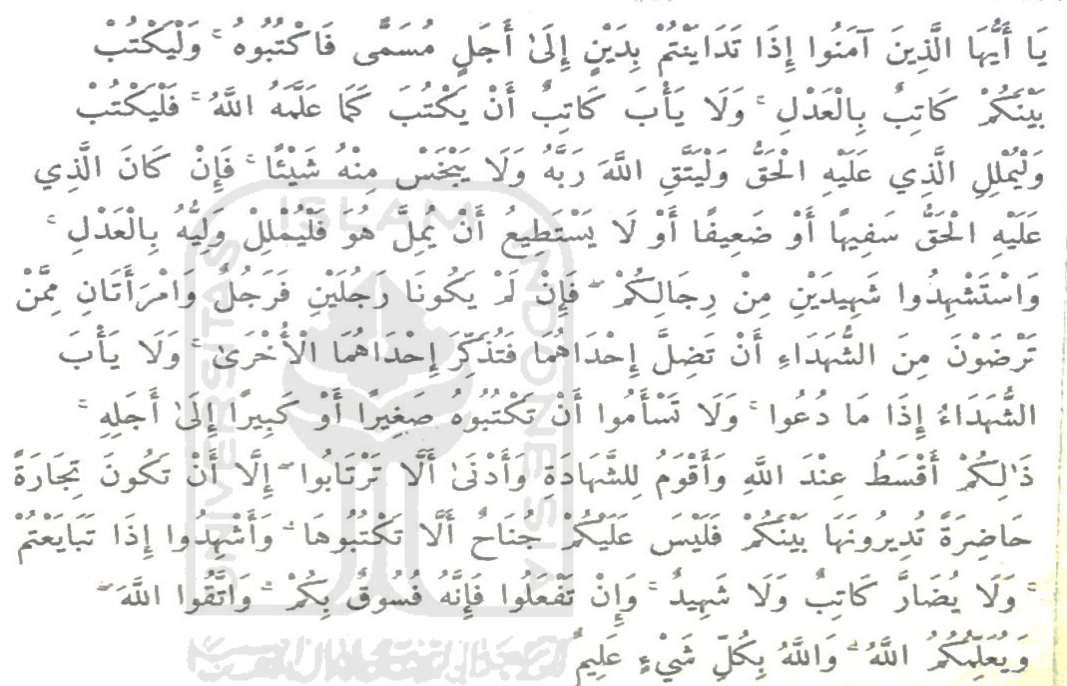 يَا أَيُّهَا الَّذِينَ آمَنُوا إِذَا تَدَايَنْتُمْ بِدَيْنٍ إِلَىٰ أَجَلٍ مُسَمًّى فَاكْتُبُوهُ ۚ وَلْيَكْتُبْ
بَيْنَكُمْ كَاتِبٌ بِالْعَدْلِ ۚ وَلَا يَأْبَ كَاتِبٌ أَنْ يَكْتُبَ كَمَا عَلَّمَهُ اللَّهُ ۚ فَلْيَكْتُبْ
وَلْيُمْلِلِ الَّذِي عَلَيْهِ الْحَقُّ وَلْيَتَّقِ اللَّهَ رَبَّهُ وَلَا يَبْخَسْ مِنْهُ شَيْئًا ۚ فَإِنْ كَانَ الَّذِي
عَلَيْهِ الْحَقُّ سَفِيهًا أَوْ ضَعِيفًا أَوْ لَا يَسْتَطِيعُ أَنْ يُمِلَّ هُوَ فَلْيُمْلِلْ وَلِيُّهُ بِالْعَدْلِ ۚ
وَاسْتَشْهِدُوا شَهِيدَيْنِ مِنْ رِجَالِكُمْ ۖ فَإِنْ لَمْ يَكُونَا رَجُلَيْنِ فَرَجُلٌ وَامْرَأَتَانِ مِمَّنْ
تَرْضَوْنَ مِنَ الشُّهَدَاءِ أَنْ تَضِلَّ إِحْدَاهُمَا فَتُذَكِّرَ إِحْدَاهُمَا الْأُخْرَىٰ ۚ وَلَا يَأْبَ
الشُّهَدَاءُ إِذَا مَا دُعُوا ۚ وَلَا تَسْأَمُوا أَنْ تَكْتُبُوهُ صَغِيرًا أَوْ كَبِيرًا إِلَىٰ أَجَلِهِ ۚ
ذَٰلِكُمْ أَقْسَطُ عِنْدَ اللَّهِ وَأَقْوَمُ لِلشَّهَادَةِ وَأَدْنَىٰ أَلَّا تَرْتَابُوا ۖ إِلَّا أَنْ تَكُونَ تِجَارَةً
حَاضِرَةً تُدِيرُونَهَا بَيْنَكُمْ فَلَيْسَ عَلَيْكُمْ جُنَاحٌ أَلَّا تَكْتُبُوهَا ۗ وَأَشْهِدُوا إِذَا تَبَايَعْتُمْ
ۚ وَلَا يُضَارَّ كَاتِبٌ وَلَا شَهِيدٌ ۚ وَإِنْ تَفْعَلُوا فَإِنَّهُ فُسُوقٌ بِكُمْ ۗ وَاتَّقُوا اللَّهَ ۖ
وَيُعَلِّمُكُمُ اللَّهُ ۗ وَاللَّهُ بِكُلِّ شَيْءٍ عَلِيمٌ
UNIVERSITAS
ISLAM
INDONESIA